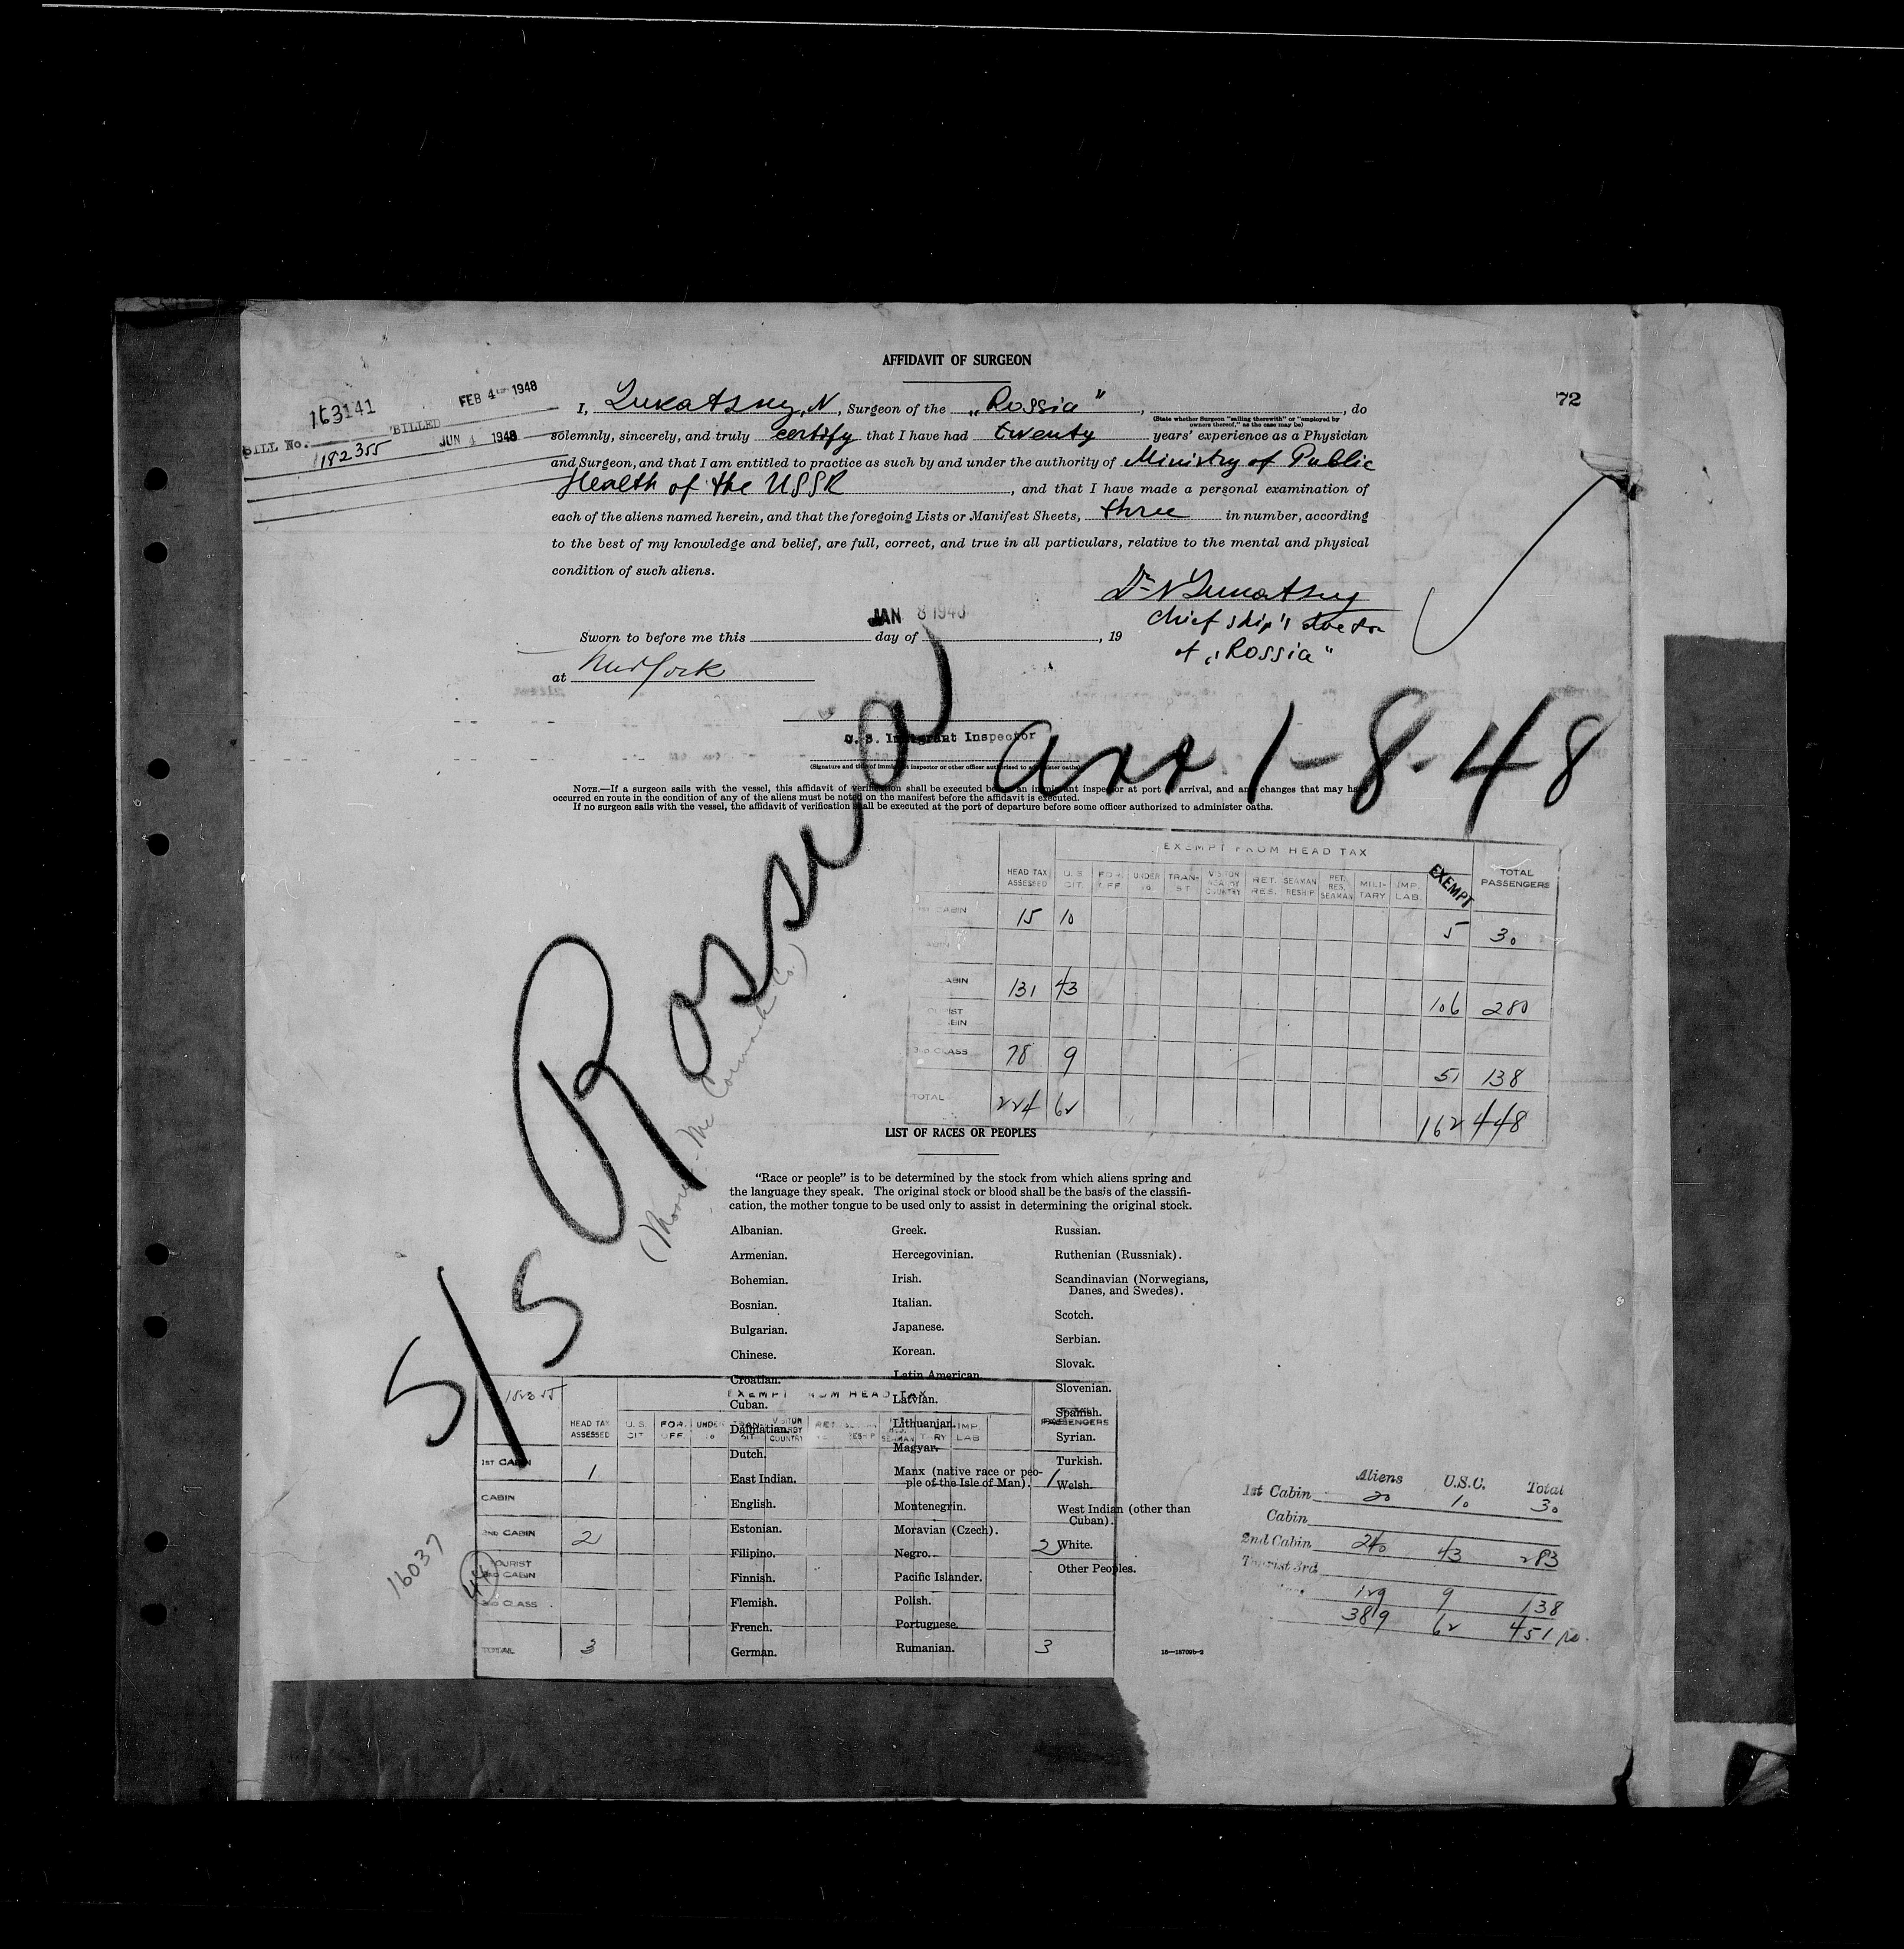 AFFIDAVIT OF SURGEON
72
163141
FEB 4 1948
BILL No. BILLED
182355 JUN 4 1948
I, Lukatsky, N, Surgeon of the „Rossia", , do
(State whether Surgeon "sailing therewith" or "employed by
owners thereof," as the case may be)
solemnly, sincerely, and truly certify that I have had twenty years' experience as a Physician
and Surgeon, and that I am entitled to practice as such by and under the authority of Ministry of Public
Health of the USSR, and that I have made a personal examination of
each of the aliens named herein, and that the foregoing Lists or Manifest Sheets, three in number, according
to the best of my knowledge and belief, are full, correct, and true in all particulars, relative to the mental and physical
condition of such aliens.
Dr N Lukatsky
chief ship's doctor
of „Rossia"
JAN 8 1948
Sworn to before me this day of , 19
at New York
U. S. Immigrant Inspector
(Signature and title of immigrant inspector or other officer authorized to administer oaths)
S/S Rossia arr. 1-8-48
(Moore-McCormack Co.)
NOTE.—If a surgeon sails with the vessel, this affidavit of verification shall be executed before an immigrant inspector at port of arrival, and any changes that may have
occurred en route in the condition of any of the aliens must be noted on the manifest before the affidavit is executed.
If no surgeon sails with the vessel, the affidavit of verification shall be executed at the port of departure before some officer authorized to administer oaths.
EXEMPT FROM HEAD TAX
HEAD TAX ASSESSED U.S. CIT. FOR. OFF. UNDER 16 TRANSIT VISITOR NEARBY COUNTRY RET. RES. SEAMAN RESHIP RET. RES. SEAMAN MILITARY IMP. LAB. EXEMPT TOTAL PASSENGERS
1ST CABIN 15 10 5 30
CABIN
CABIN 131 43 106 280
TOURIST CABIN
3RD CLASS 78 9 51 138
TOTAL 224 62 162 448
LIST OF RACES OR PEOPLES
"Race or people" is to be determined by the stock from which aliens spring and
the language they speak. The original stock or blood shall be the basis of the classifi-
cation, the mother tongue to be used only to assist in determining the original stock.
Albanian.
Armenian.
Bohemian.
Bosnian.
Bulgarian.
Chinese.
Croatian.
Cuban.
Dalmatian.
Dutch.
East Indian.
English.
Estonian.
Filipino.
Finnish.
Flemish.
French.
German.
Greek.
Hercegovinian.
Irish.
Italian.
Japanese.
Korean.
Latin American.
Latvian.
Lithuanian.
Magyar.
Manx (native race or peo-
ple of the Isle of Man).
Montenegrin.
Moravian (Czech).
Negro.
Pacific Islander.
Polish.
Portuguese.
Rumanian.
Russian.
Ruthenian (Russniak).
Scandinavian (Norwegians,
Danes, and Swedes).
Scotch.
Serbian.
Slovak.
Slovenian.
Spanish.
Syrian.
Turkish.
Welsh.
West Indian (other than
Cuban).
White.
Other Peoples.
182355
EXEMPT FROM HEAD TAX
HEAD TAX ASSESSED U.S. CIT. FOR. OFF. UNDER 16 TRANSIT VISITOR NEARBY COUNTRY RET. RESHIP SEAMAN IMP LAB PASSENGERS
1ST CABIN 1 1
CABIN
2ND CABIN 2 2
TOURIST
3RD CABIN
3RD CLASS
TOTAL 3 3
16037
44
Aliens U.S.C. Total
1st Cabin 20 10 30
Cabin
2nd Cabin 240 43 283
Tourist 3rd
129 9 138
389 62 451
16—18709b-2